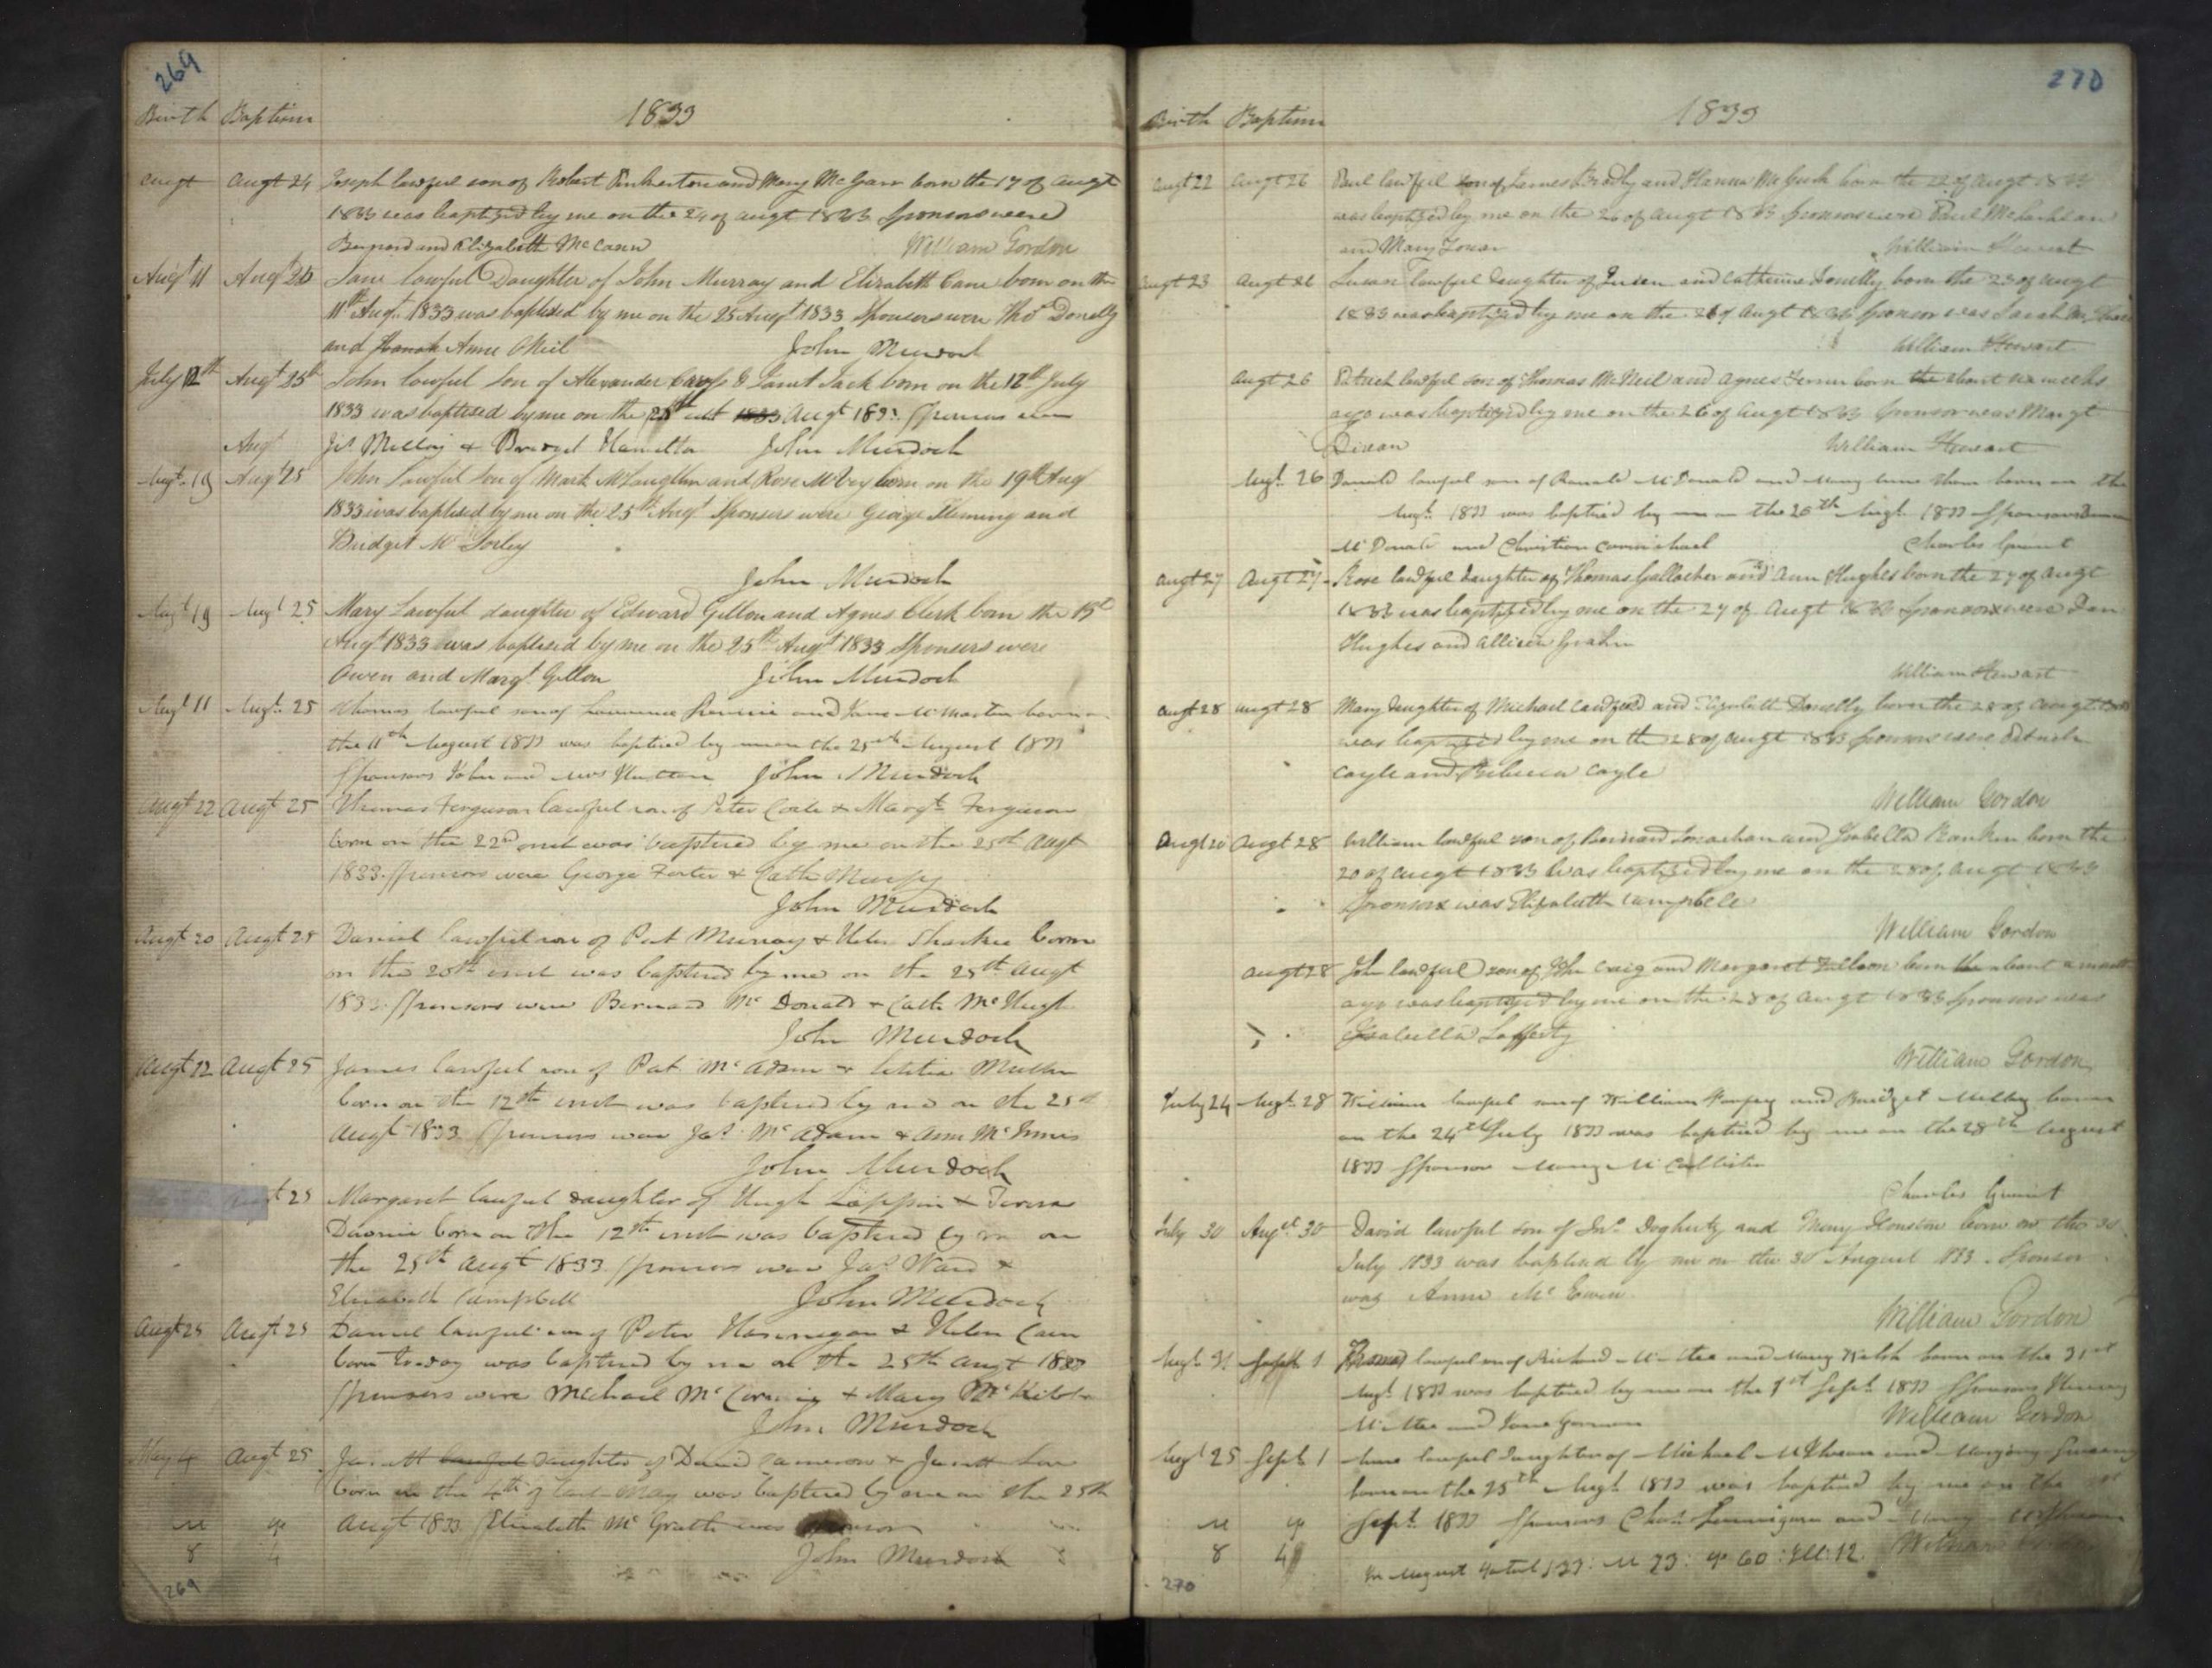 269
Birth Baptism 1833
Augt Augt 24 Joseph lawful son of Robert Pinkerton and Mary McGarr born the 17 of Augt
1833 was baptized by me on the 24 of augt 1833 Sponsors were
Bernard and Elizabeth McCann William Gordon
Augt 11 Augt 25 Jane lawful Daughter of John Murray and Elizabeth Cane born on the
11th Augt. 1833 was baptised by me on the 25 Augt 1833 Sponsers were Thos Donelly
and Hanah Anne ONeil John Murdoch
July 12th Augt 25th John lawful Son of Alexander & Janet Jack born on the 12th July
1833 was baptised by me on the 25th 1833 Augt 1833. Sponsors were
Augt Js. & Bridget Hamilton John Murdoch
Augt. 19 Augt 25 John Lawful Son of Mark McLaughlin and Rose McVey born on the 19th Augt
1833 was baptised by me on the 25th Augt. Sponsers were George Fleming and
Bridget Mc Sorley
John Murdoch
Augt 19 Augt 25 Mary Lawful daughter of Edward Gillon and Agnes Clerk born the
Augt 1833 was baptised by me on the 25th Augt 1833 Sponsers were
Owen and Margt. Gillon John Murdoch
Augt 11 Augt. 25 Thomas lawful son of Lawrence and Jane McMartin born on
the 11th August 1833 was baptised by me on the 25th August 1833
Sponsors John and John Murdoch
Augt 22 Augt 25 Thomas Ferguson lawful son of Peter & Margt. Ferguson
born on the 22nd inst was baptised by me on the 25th Augt
1833. Sponsors were George & Cath
John Murdoch
Augt 20 Augt 25 Daniel lawful son of Pat Murray & Helen Sharkie born
on the 20th inst was baptised by me on the 25th Augt
1833. Sponsors were Bernard Mc Donald & Cath McHugh
John Murdoch
Augt 12 Augt 25 James lawful son of Pat McAdam & Letitia
born on the 12th inst was baptised by me on the 25th
Augt 1833 Sponsors were Jas. McAdam & Ann McInnes
John Murdoch
Augt 25 Margaret lawful daughter of Hugh Lappin & Teresa
born on the 12th inst was baptised by me on
the 25th Augt 1833 Sponsors were Jas. Ward &
Elizabeth Campbell John Murdoch
Augt 25 Augt 25 Daniel lawful son of Peter & Helen Cain
born today was baptised by me on the 25th Augt 1833
Sponsors were Michael & Mary
John Murdoch
May 4 Augt 25 Janett lawful daughter of David Cameron & Janett
born on the 4th of last May was baptised by me on the 25th
M
Augt 1833 Elizabeth McGrath was sponsor
8 4 John Murdoch
269
270
Birth Baptism 1833
Augt 22 Augt 26 Paul lawful son of James Bradly and Hanna McGurk born the 22 of Augt 1833
was baptized by me on the 26 of Augt 1833 Sponsors were Paul McLachlan
and Mary William Stewart
Augt 23 Augt 26 Susan lawful daughter of and Catherine Donelly born the 23 of Augt
1833 was baptized by me on the 26 of Augt 1833 Sponsor was Sarah
William Stewart
Augt 26 Patrick lawful son of Thomas McNeil and Agnes born the about six weeks
ago was baptized by me on the 26 of Augt 1833 Sponsor was Margt
William Stewart
Augt. 26 Donald lawful son of Ranald McDonald and Mary born on the
Augt. 1833 was baptised by me on the 26th Augt. 1833 Sponsors
McDonald and Christian Carmichael Charles Grant
Augt 27 Augt 27 Rose lawful daughter of Thomas Gallocher and Ann Hughes born the 27 of Augt
1833 was baptized by me on the 27 of Augt 1833 Sponsors were Dan
Hughes and Allison Grahm
William Stewart
Augt 28 Augt 28 Mary daughter of Michael and Elizabeth Donelly born the 28 of Augt
was baptized by me on the 28 of Augt 1833 Sponsors were Patrick
Coyle and Rebecca Coyle
William Gordon
Augt 20 Augt 28 William lawful son of Bernard and Isabella Rankin born the
20 of Augt 1833 was baptized by me on the 28 of Augt 1833
Sponsors was Elizabeth Campbell
William Gordon
Augt 28 John lawful son of John Craig and Margaret born the about a month
ago was baptized by me on the 28 of Augt 1833 Sponsors was
Isabella Lafferty
William Gordon
July 24 Augt. 28 William lawful son of William and Bridget born
on the 24th July 1833 was baptised by me on the 28th August
1833 Sponsor Mary McCallister
Charles Grant
July 30 Augst 30 David lawful son of Jno. Dogherty and Mary Houston born on the 30
July 1833 was baptised by me on the 30 August 1833. Sponsor
was Anne McEwen
William Gordon
Augt. 31 Septr 1 Thomas lawful son of Richard and Mary Welsh born on the 31st
Augt. 1833 was baptised by me on the 1st Sept. 1833 Sponsors
and Jane William Gordon
Augt 25 Septr 1 lawful daughter of Michael and
born on the 25th Augt 1833 was baptised by me on the 1st
M
Sept. 1833 Sponsors Chas. and Mary
8 4 William
In August Total 133: M 73: 60: Ill: 12
270